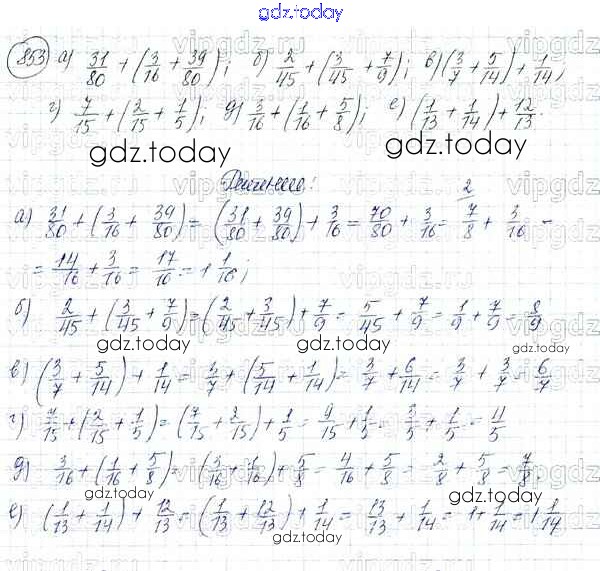 gdz.today
853 а) 31/80 + (3/16 + 39/80); б) 2/45 + (3/45 + 7/9); в) (3/7 + 5/14) + 1/14;
г) 7/15 + (2/15 + 1/5); д) 3/16 + (1/16 + 5/8); е) (1/13 + 1/14) + 12/13.
gdz.today gdz.today
Решение:
а) 31/80 + (3/16 + 39/80) = (31/80 + 39/80) + 3/16 = 70/80 + 3/16 = 7/8 + 3/16 =
= 14/16 + 3/16 = 17/16 = 1 1/16;
б) 2/45 + (3/45 + 7/9) = (2/45 + 3/45) + 7/9 = 5/45 + 7/9 = 1/9 + 7/9 = 8/9
gdz.today gdz.today
в) (3/7 + 5/14) + 1/14 = 3/7 + (5/14 + 1/14) = 3/7 + 6/14 = 3/7 + 3/7 = 6/7
г) 7/15 + (2/15 + 1/5) = (7/15 + 2/15) + 1/5 = 9/15 + 1/5 = 3/5 + 1/5 = 4/5
д) 3/16 + (1/16 + 5/8) = (3/16 + 1/16) + 5/8 = 4/16 + 5/8 = 2/8 + 5/8 = 7/8.
gdz.today gdz.today
е) (1/13 + 1/14) + 12/13 = (1/13 + 12/13) + 1/14 = 13/13 + 1/14 = 1 + 1/14 = 1 1/14
gdz.today